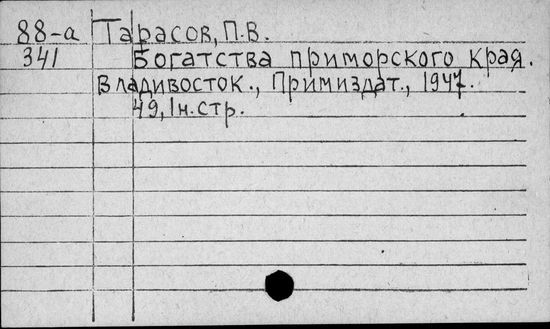 88-а Тарасов, П.В.
341 Богатства приморского края.
Владивосток., Примиздат., 1947.
49, 1н.стр.